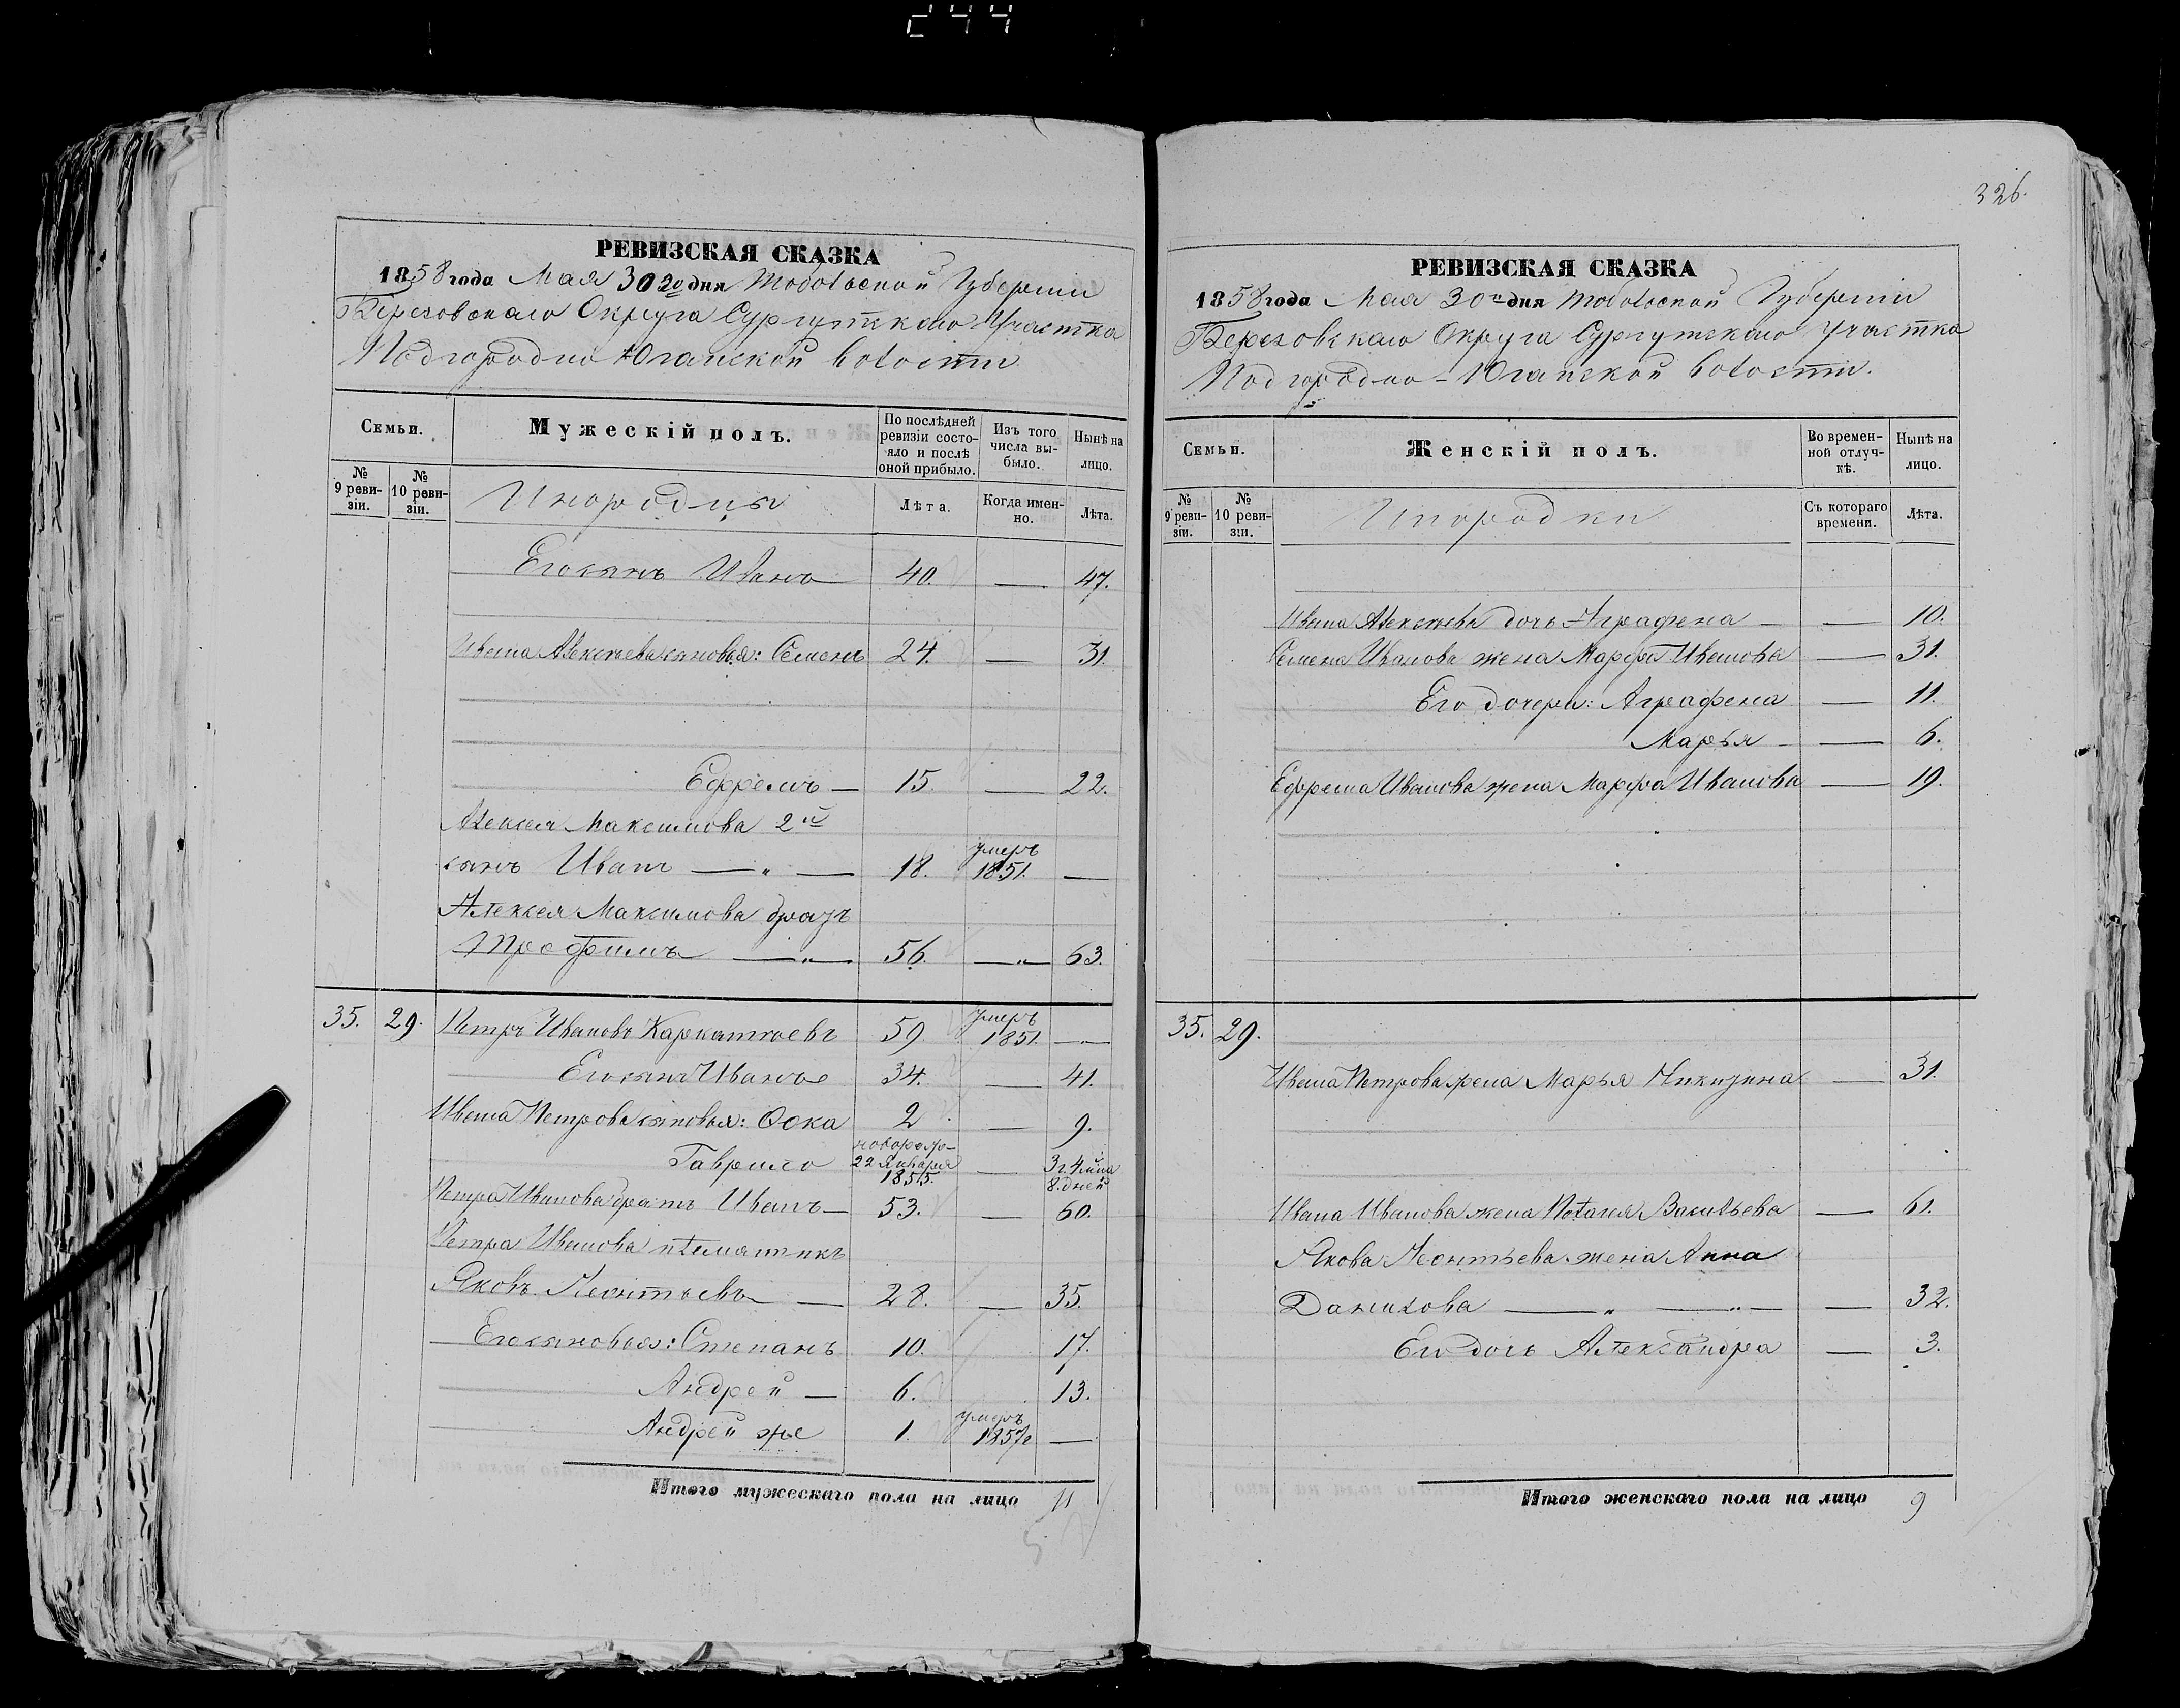 244
РЕВИЗСКАЯ СКАЗКА
1858 года Мая 30го дня Тобольской Губернiи
Березовскаго Округа Сургутскаго Участка
Подгородно Юганской волости.
Семьи.
Мужескiй полъ.
По послѣдней ревизiи состояло и послѣ оной прибыло.
Изъ того числа выбыло.
Нынѣ на лицо.
№ 9 ревизiи.
№ 10 ревизiи.
Инородцы
Лѣта.
Когда именно.
Лѣта.
Его сынъ Иванъ 40. — 47.
Ивана Алексѣева сыновья: Семенъ 24. — 31.
Ефремъ — 15. — 22.
Алексея Максимова 2й
сынъ Иванъ — „ — 18. умеръ 1851. —
Алексея Максимова братъ
Трофимъ — „ — 56. — „ — 63.
35. 29. Петръ Ивановъ Каркатѣевъ 59. умеръ 1851. —
Его сынъ Иванъ 34. — 41.
Ивана Петрова сыновья: Фока 2 — 9.
Гаврило новорож- 22 Января 1855. — 3 г. 4 м-ца 8. дней
Петра Иванова братъ Иванъ — 53. — 60.
Петра Иванова племянникъ
Яковъ Леонтьевъ — 28. — 35.
Его сыновья: Степанъ 10. 17.
Андрей — 6. 13.
Андрей же 1. умеръ 1857г —
Итого мужескаго пола на лицо 11
326.
РЕВИЗСКАЯ СКАЗКА
1858 года Мая 30го дня Тобольской Губернiи
Березовскаго Округа Сургутскаго Участка
Подгородно-Юганской волости.
Семьи.
Женскiй полъ.
Во временной отлучкѣ.
Нынѣ на лицо.
№ 9 ревизiи.
№ 10 ревизiи.
Инородки
Съ котораго времени.
Лѣта.
Ивана Алексѣева дочь Аграфена — — 10.
Семена Иванова жена Марфа Иванова — 31.
Его дочери: Аграфена — 11.
Марья — — 6.
Ефрема Иванова жена Марфа Иванова — 19.
35. 29.
Ивана Петрова жена Марья Никитина — 31.
Ивана Иванова жена Пелагея Васильева — 61.
Якова Леонтьева жена Анна
Данилова — „ — „ — — 32.
Его дочь Александра — 3.
Итого женскаго пола на лицо 9